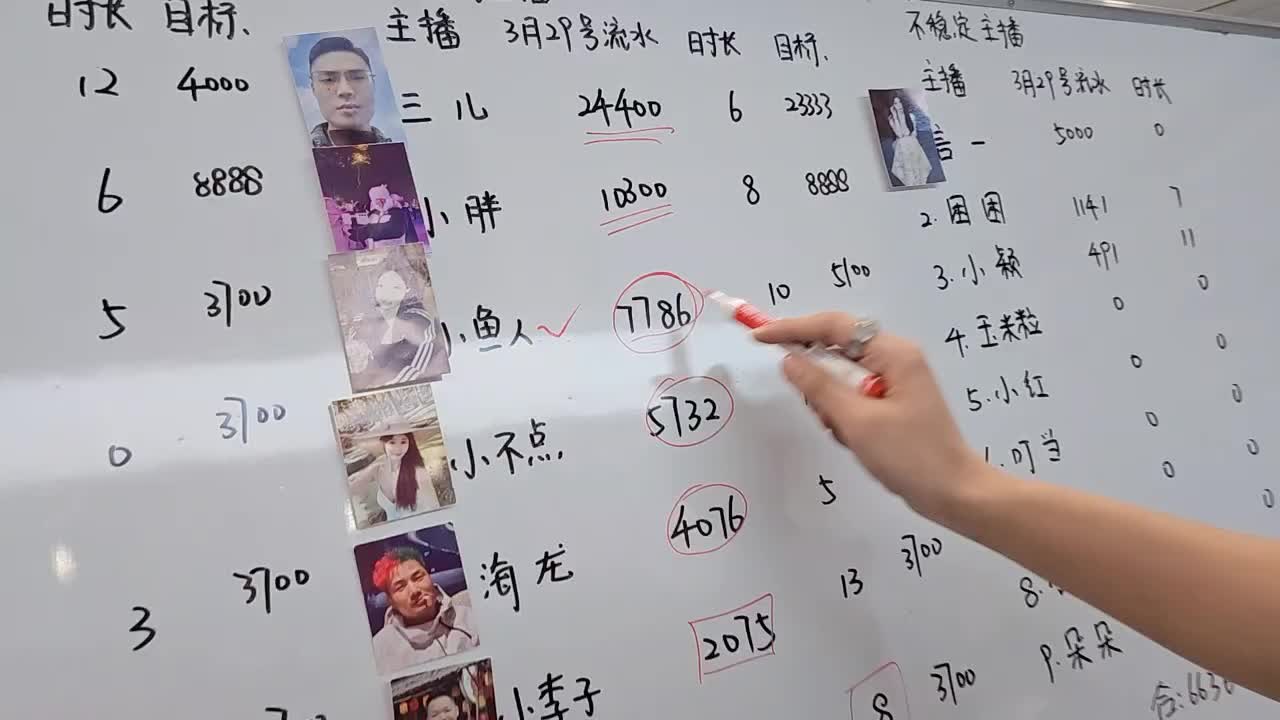 时长 目标
12 4000
6 8888
5 3700
0 3700
3 3700
主播 3月29号流水 时长 目标
三儿 24400 6 23333
小胖 10300 8 8888
小鱼人 7786 10 5100
小不点 5732
海龙 4076 5
2075 13 3700
小李子 8 3700
不稳定主播
主播 3月29号流水 时长
言一 5000 0
2.困困 1141 7
3.小颖 491 11
4.玉米粒 0 0
5.小红 0 0
叮当 0 0
0 0
8. 0
9.朵朵
合:6636